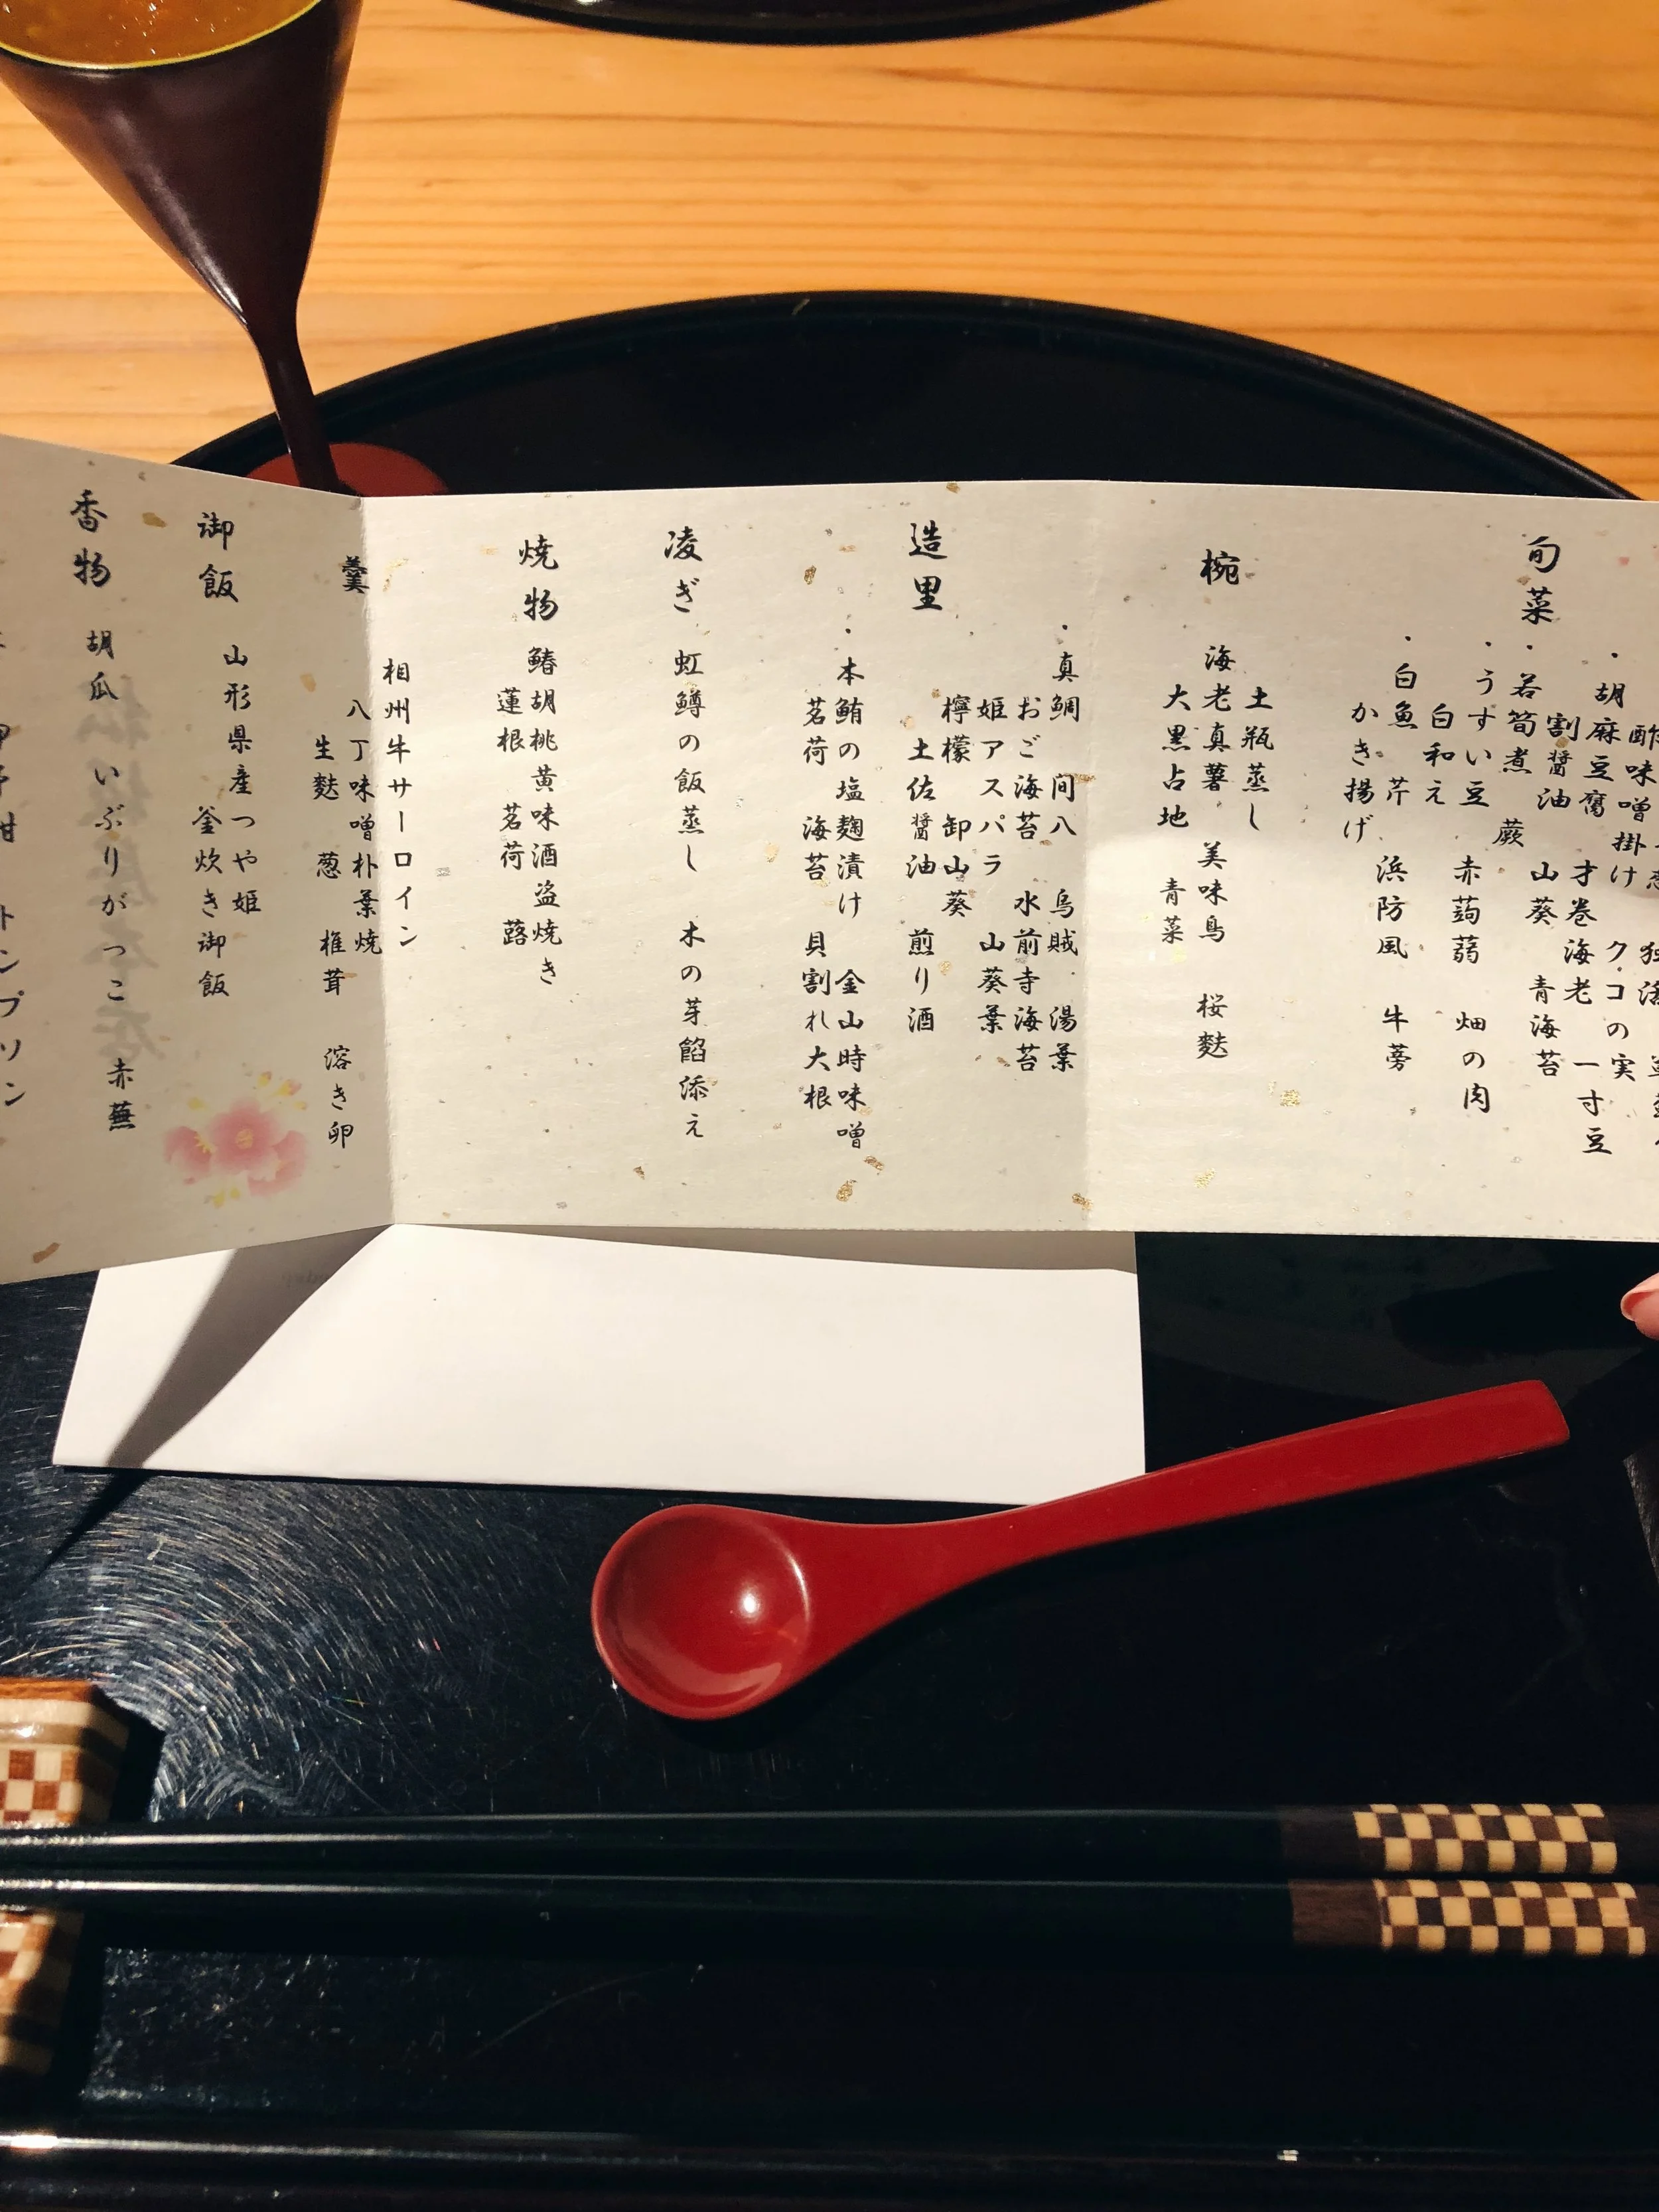 旬菜
酢味噌掛け
・胡麻豆腐 クコの実
割醤油 才巻海老 一寸豆
・若筍煮 山葵 青海苔
蕨
・うすい豆 赤蒟蒻 畑の肉
白和え
・白魚 芹 浜防風 牛蒡
かき揚げ
椀
土瓶蒸し
海老真薯 美味鳥 桜麩
大黒占地 青菜
造里
・真鯛 間八 烏賊 湯葉
おご海苔 水前寺海苔
姫アスパラ 山葵葉
檸檬 卸山葵
土佐醤油 煎り酒
・本鮪の塩麹漬け 金山時味噌
茗荷 海苔 貝割れ大根
凌ぎ
虹鱒の飯蒸し 木の芽餡添え
焼物
鰆胡桃黄味酒盗焼き
蓮根 茗荷 蕗
羹
相州牛サーロイン
八丁味噌朴葉焼
生麩 葱 椎茸 溶き卵
御飯
山形県産つや姫
釜炊き御飯
香物
胡瓜 いぶりがっこ 赤蕪